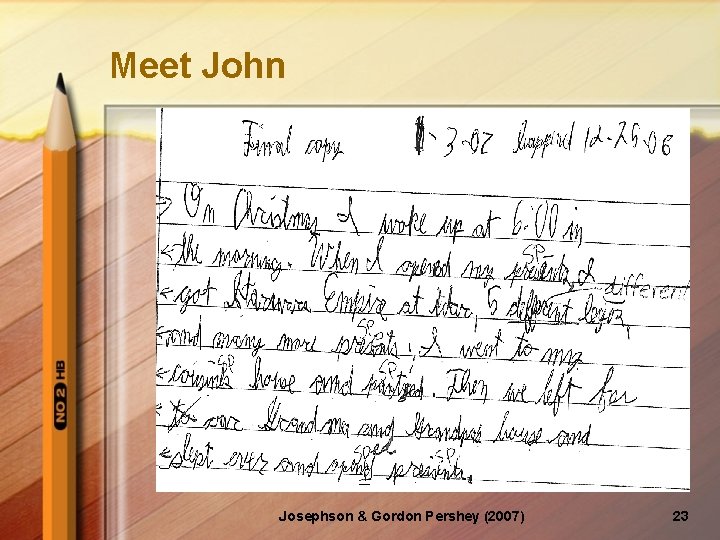 Meet John
Final copy 1-3-07 happined 12-25-06
On Christmas I woke up at 6:00 in
SP
the morning. When I opened my presents, I
different
got Starwars Empire at War, 5 different legos,
SP
and many more presents. I went to my
SP SP
cousins house and partyed. Then we left for
to our Grandma and Grandpas house and
SP ed SP
slept over and opend presents.
NO 2 HB
Josephson & Gordon Pershey (2007) 23